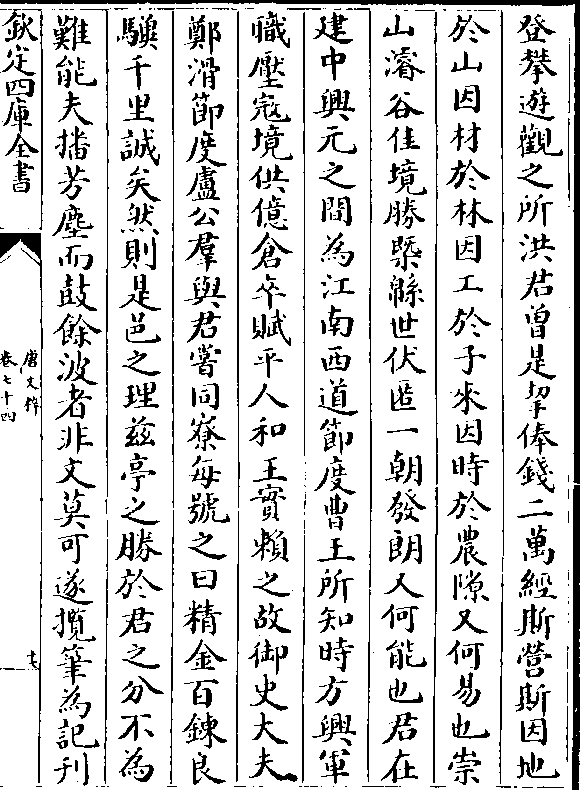 登攀遊觀之所洪君曾是挈俸錢二萬經斯營斯因地
於山因材於林因工於子來因時於農隙又何易也崇
山濬谷佳境勝槩緜世伏匿一朝發朗又何能也君在
建中興元之間為江南西道節度曹王所知時方興軍
職壓寇境供億倉卒賦平人和王實賴之故御史大夫
鄭滑節度盧公羣與君嘗同寮每號之曰精金百鍊良
驥千里誠矣然則是邑之理兹亭之勝於君之分不為
難能夫播芳塵而鼓餘波者非文莫可遂攬筆為記刊
欽定四庫全書
唐文粹
卷七十四